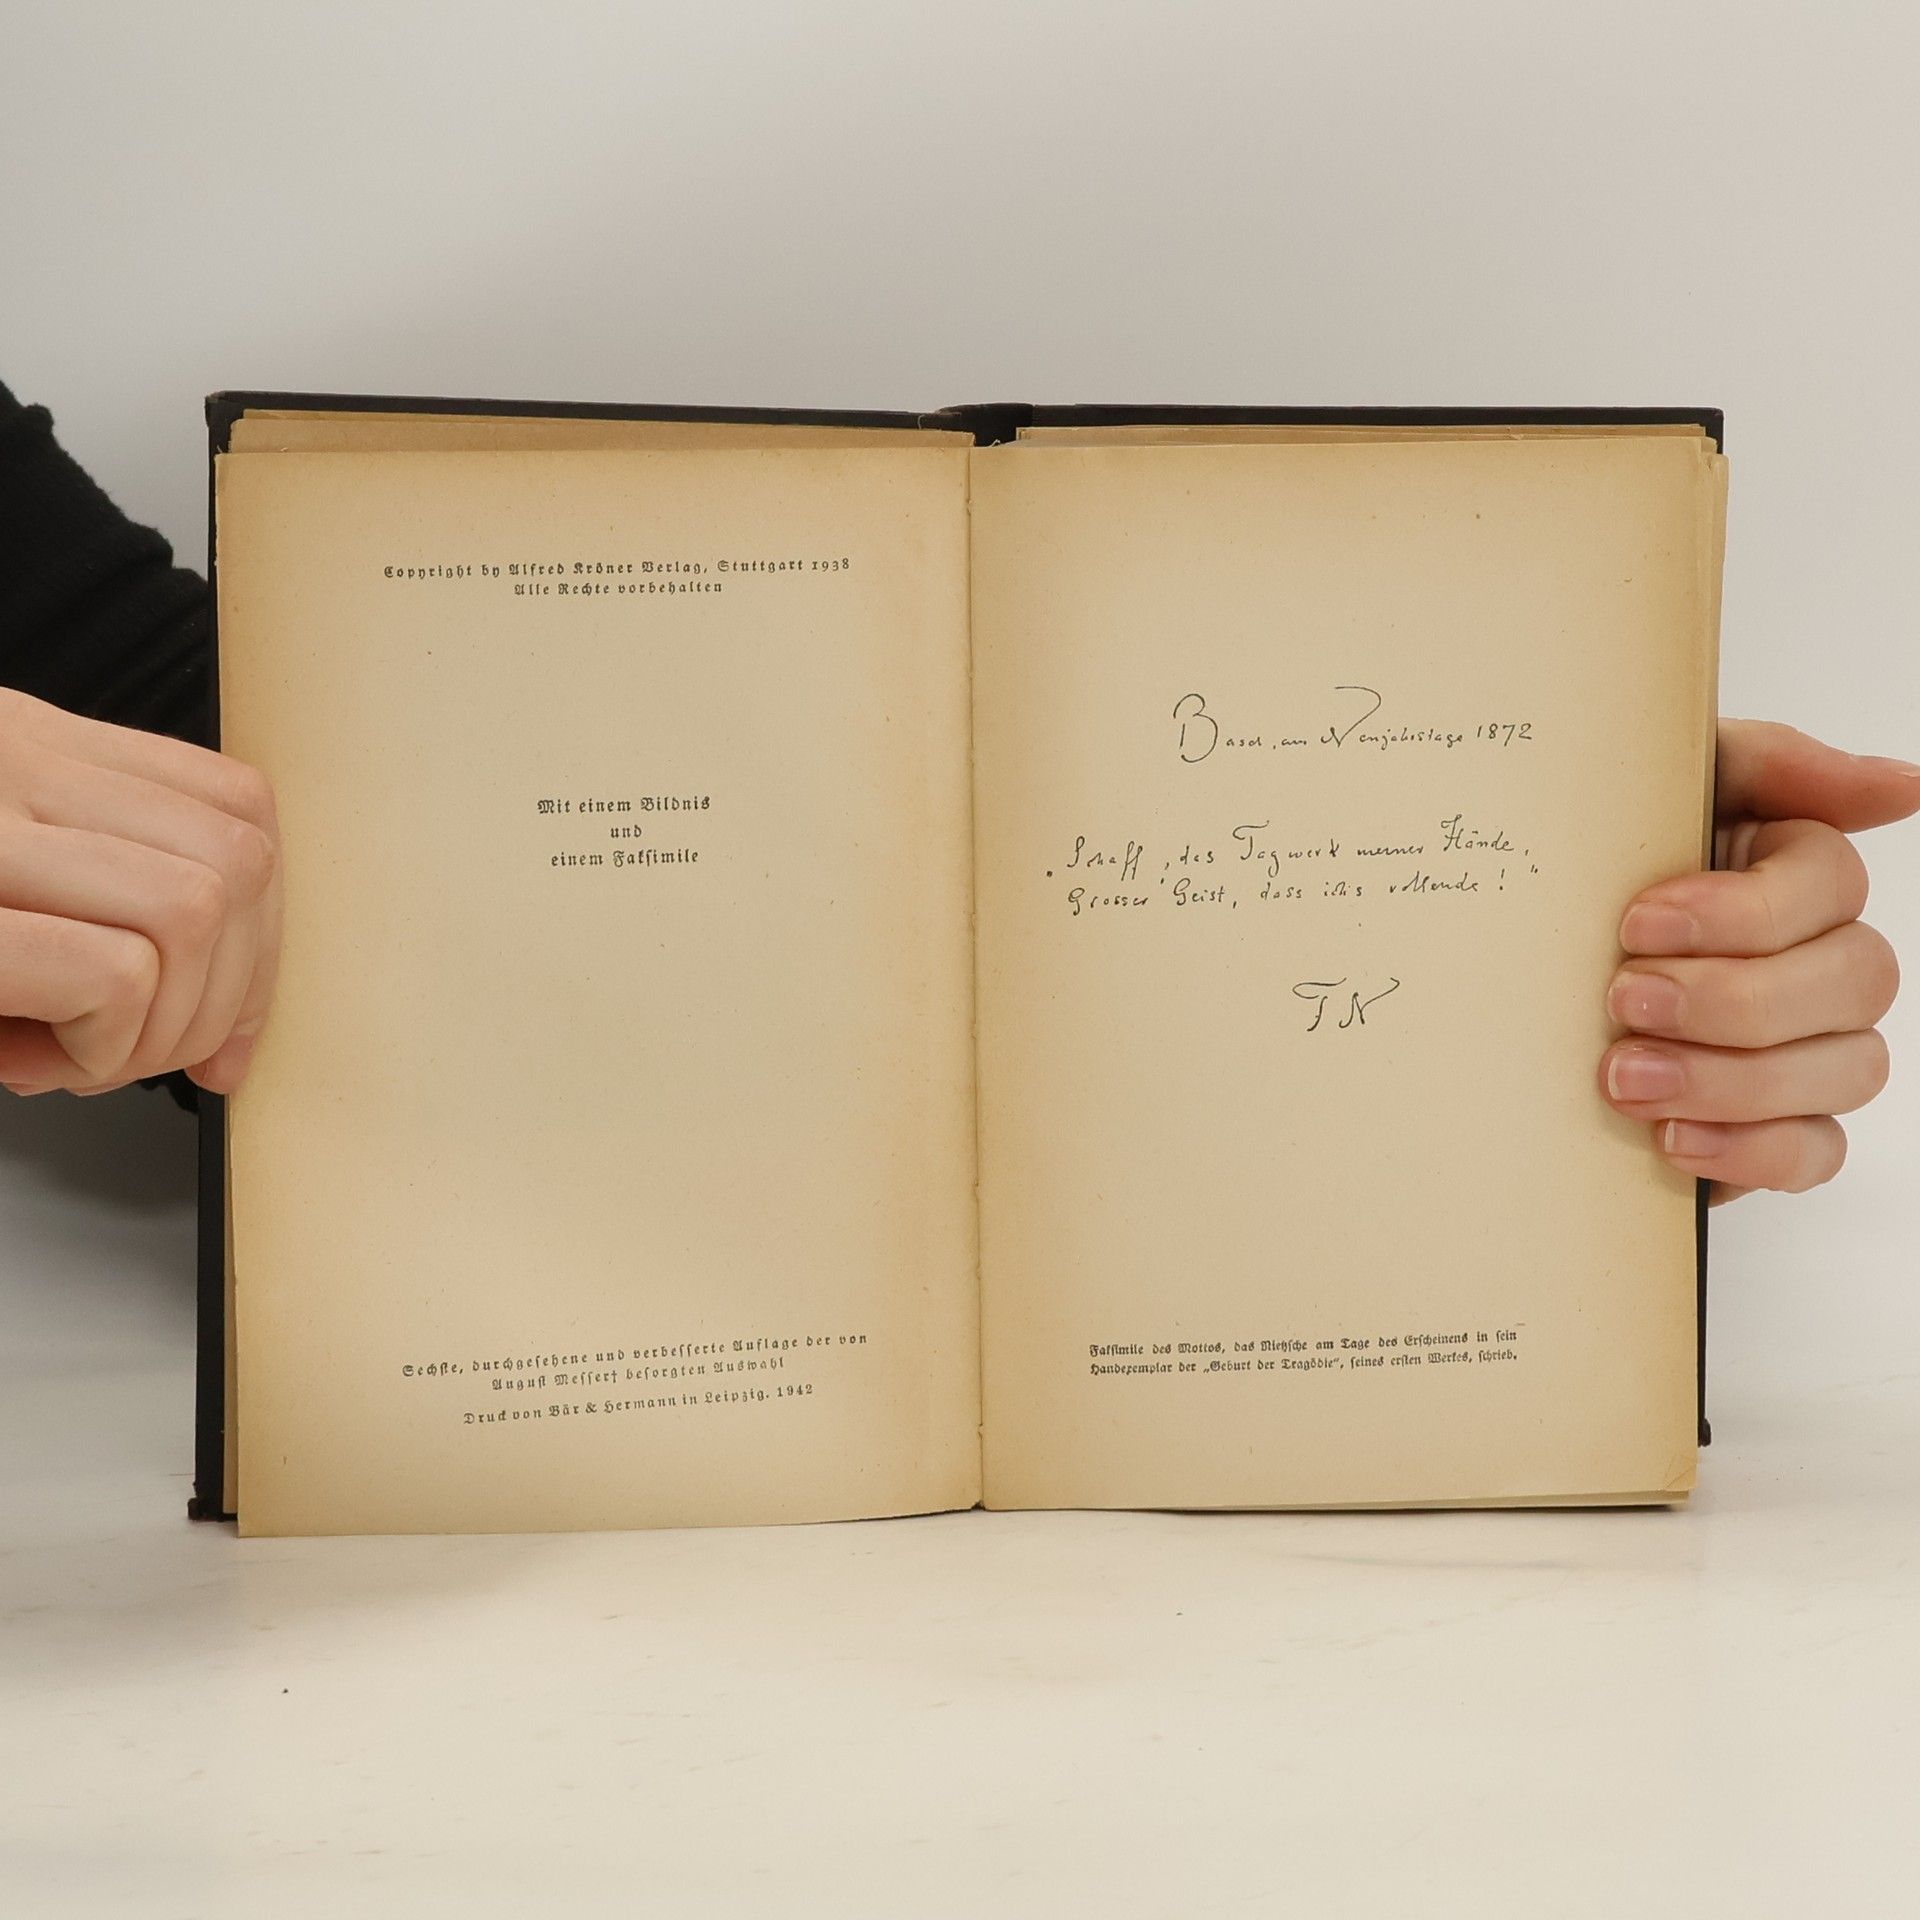 Copyright by Alfred Kröner Verlag, Stuttgart 1938
Alle Rechte vorbehalten
Mit einem Bildnis
und
einem Faksimile
Sechste, durchgesehene und verbesserte Auflage der von
August Messer† besorgten Auswahl
Druck von Bär & Hermann in Leipzig. 1942
Basel, am Neujahrstage 1872
„Schaff, das Tagwerk meiner Hände,
Grosser Geist, dass ichs vollende!“
FN
Faksimile des Mottos, das Nietzsche am Tage des Erscheinens in sein
Handexemplar der „Geburt der Tragödie“, seines ersten Werkes, schrieb.